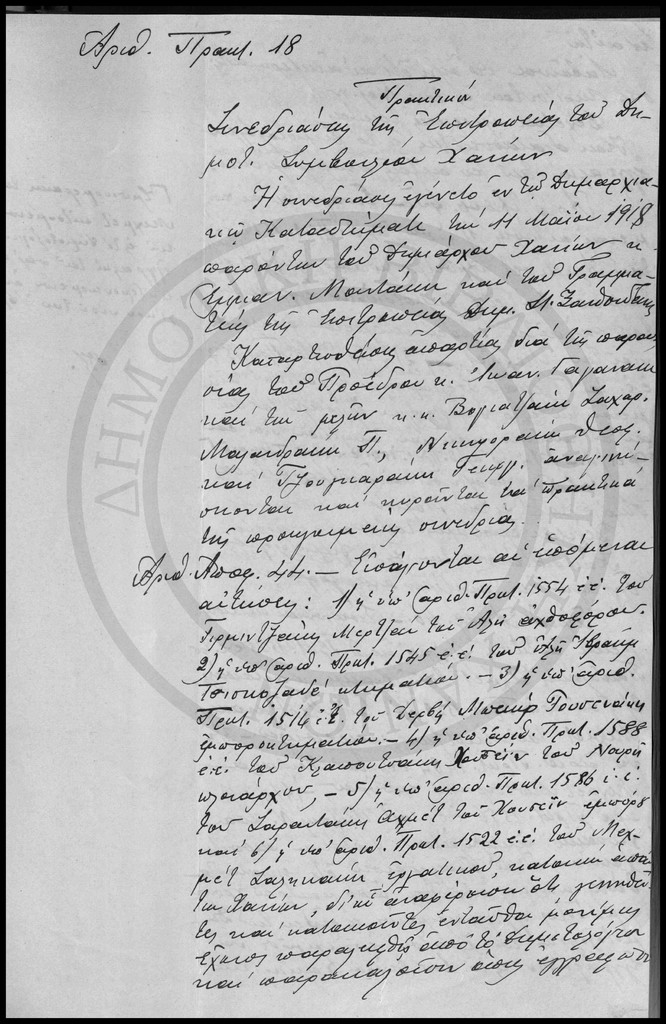 Αριθ. Πρακτ. 18
Πρακτικόν
Συνεδριάσεως της Επιτροπείας του Δη-
μοτ. Συμβουλίου Χανίων
Η συνεδρίασις εγένετο εν τω Δημαρχια-
κώ Καταστήματι την 11 Μαΐου 1918
παρόντων του Δημάρχου Χανίων κ.
Εμμαν. Μουντάκη και του Γραμμα-
τέως της Επιτροπείας Δημ.
Καταρτισθείσης απαρτίας δια της παρου-
σίας του Προέδρου κ. Ιωαν.
και των μελών κ.κ. Βογιατζάκη Ζαχαρ.
Μαλανδράκη Π., Νικηφοράκη Θεοδ.
και Τζουγκαράκη Γεωργ. αναγινώ-
σκονται και κυρούνται τα πρακτικά
της προηγουμένης συνεδριάσ.
Αριθ. Αποφ. 44. — Εισάγονται αι επόμεναι
αιτήσεις: 1) η υπ' αριθ. Πρωτ. 1554 ε.έ. του
Γερμεντζάκη Μερτζάν του Αλή αχθοφόρου.
2) η υπ' αριθ. Πρωτ. 1545 ε.έ. του Αλή Ιβραήμ
κτηματίου. — 3) η υπ' αριθ.
Πρωτ. 1514 ε.έ. του Δερβή Μπεκήρ
εμποροκτηματίου. — 4) η υπ' αριθ. Πρωτ. 1588
ε.έ. του Χουσεΐν του Νουρή
πλοιάρχου, — 5) η υπ' αριθ. Πρωτ. 1586 ε.έ.
του Σαρακτάκη Αχμέτ του Χουσεΐν εμπόρου
και 6) η υπ' αριθ. Πρωτ. 1522 ε.έ. του Μεχ-
μέτ Σαληκάκη εργατικού, κατοίκων απάν-
των Χανίων, δι' ων αναφέρουσιν ότι γεννηθέν-
τες και κατοικούντες ενταύθα μονίμως
έχουσι παραλειφθή από το Δημοτολόγιον
και παρακαλούσιν όπως εγγραφώσιν